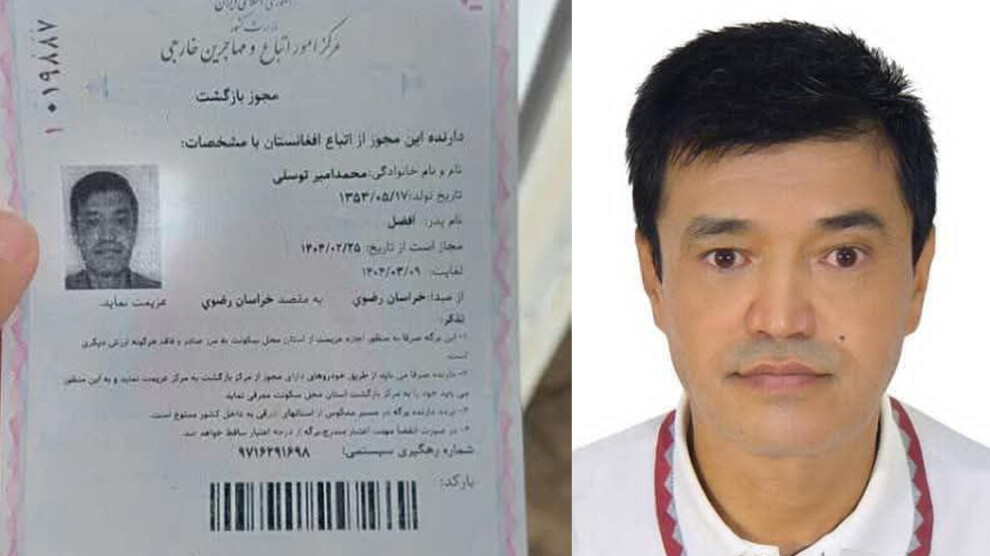 جمهوری اسلامی ایران
وزارت کشور
مرکز امور اتباع و مهاجرین خارجی
۱۰۱۹۸۸۷
مجوز بازگشت
دارنده این مجوز از اتباع افغانستان با مشخصات:
نام و نام خانوادگی: محمدامیر توسلی
تاریخ تولد: ۱۳۵۳/۰۵/۱۷
نام پدر: افضل
مجاز است از تاریخ: ۱۴۰۴/۰۲/۲۵
لغایت: ۱۴۰۴/۰۳/۰۹
از مبدا: خراسان رضوي به مقصد خراسان رضوي عزیمت نماید.
تذکر:
۱- این برگه صرفا به منظور اجازه عزیمت از استان محل سکونت به مرز صادر و فاقد هرگونه ارزش دیگری
است.
۲- دارنده صرفا می باید از طریق خودروهای دارای مجوز از مرکز بازگشت به مرکز عزیمت نماید و به این منظور
می باید خود را به مرکز بازگشت استان محل سکونت معرفی نماید
۳- تردد دارنده برگه در مسیر معکوس از استانهای شرقی به داخل کشور ممنوع است.
۴- در صورت انقضا مهلت اعتبار مندرج، برگه از درجه اعتبار ساقط خواهد شد.
شماره رهگیری سیستمی: ۹۷۱۶۲۹۱۶۹۸
بارکد: